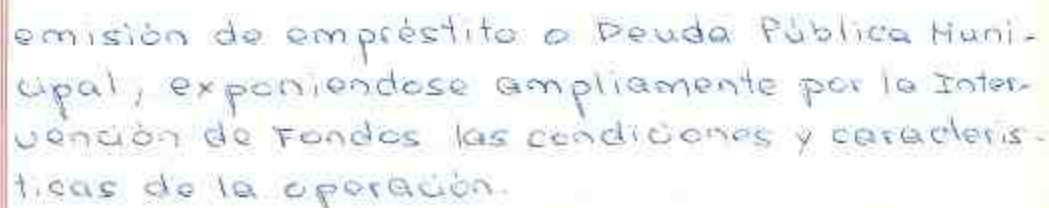 emisión de empréstito o Deuda Pública Muni-
cipal, exponiendose ampliamente por la Inter-
vención de Fondos las condiciones y caracterís-
ticas de la operación.